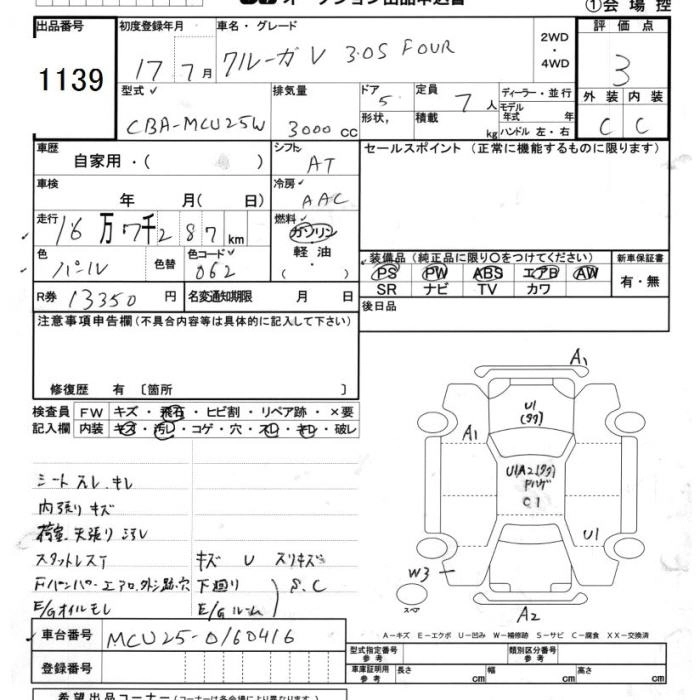 オークション出品申込書
①会場控
出品番号
1139
初度登録年月
17 7月
車名・グレード
クルーガV 3.0S FOUR
2WD
・
4WD
評価点
3
型式
CBA-MCU25W
排気量
3000 cc
ドア
5
形状
定員
7人
積載
kg
ディーラー・並行
モデル年式 年
ハンドル 左・右
外装 内装
C C
車歴
自家用・( )
シフト
AT
セールスポイント(正常に機能するものに限ります)
車検
年 月( 日)
冷房
AAC
走行
16万7千287km
燃料
ガソリン
軽油
・( )
色
パール
色替
色コード
062
装備品(純正品に限り○をつけてください)
PS PW ABS エアB AW
SR ナビ TV カワ
新車保証書
有・無
R券 13350円
名変通知期限 月 日
後日品
注意事項申告欄(不具合内容等は具体的に記入して下さい)
修復歴 有〔箇所 〕
検査員
記入欄
FW キズ・飛石・ヒビ割・リペア跡・×要
内装 キズ・汚レ・コゲ・穴・スレ・キレ・破レ
シートスレ.キレ
内張りキズ
荷室.天張り
スタットレスT
キズ U スリキズ
Fバンパー.エアロ.外シ跡.穴
下廻り
S.C
E/Gオイルモレ
E/Gルーム
A1
U1
(タタ)
A1
U1A2(タタ)
Pハゲ
C1
U1
W3
スペア
A2
A-キズ E-エクボ U-凹み W-補修跡 S-サビ C-腐食 XX-交換済
車台番号
MCU25-0160416
登録番号
型式指定番号
参考
類別区分番号
参考
車庫証明用
参考
長さ cm 幅 cm 高さ cm
希望出品コーナー(コーナーは各会場により異なります)